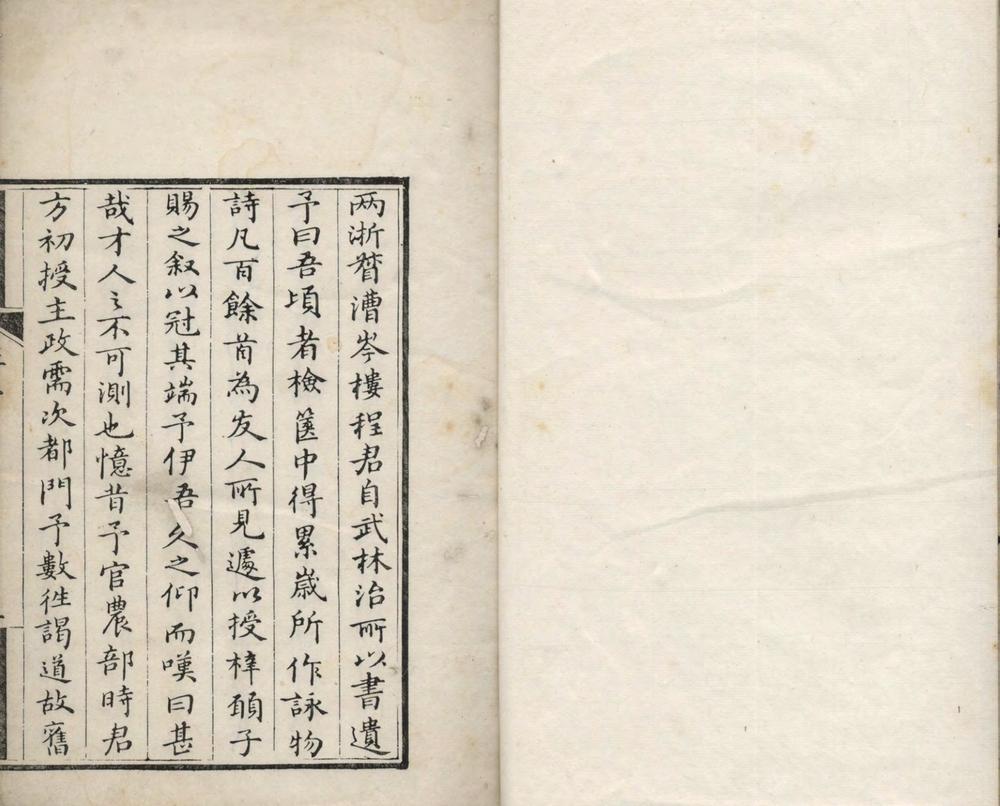 两浙督漕岑樓程君自武林治所以書遺
予曰吾頃者檢篋中得累歲所作詠物
詩凡百餘首為友人所見遽以授梓願子
賜之叙以冠其端予伊吾久之仰而嘆曰甚
哉才人之不可測也憶昔予官農部時君
方初授主政需次都門予數徃謁道故舊